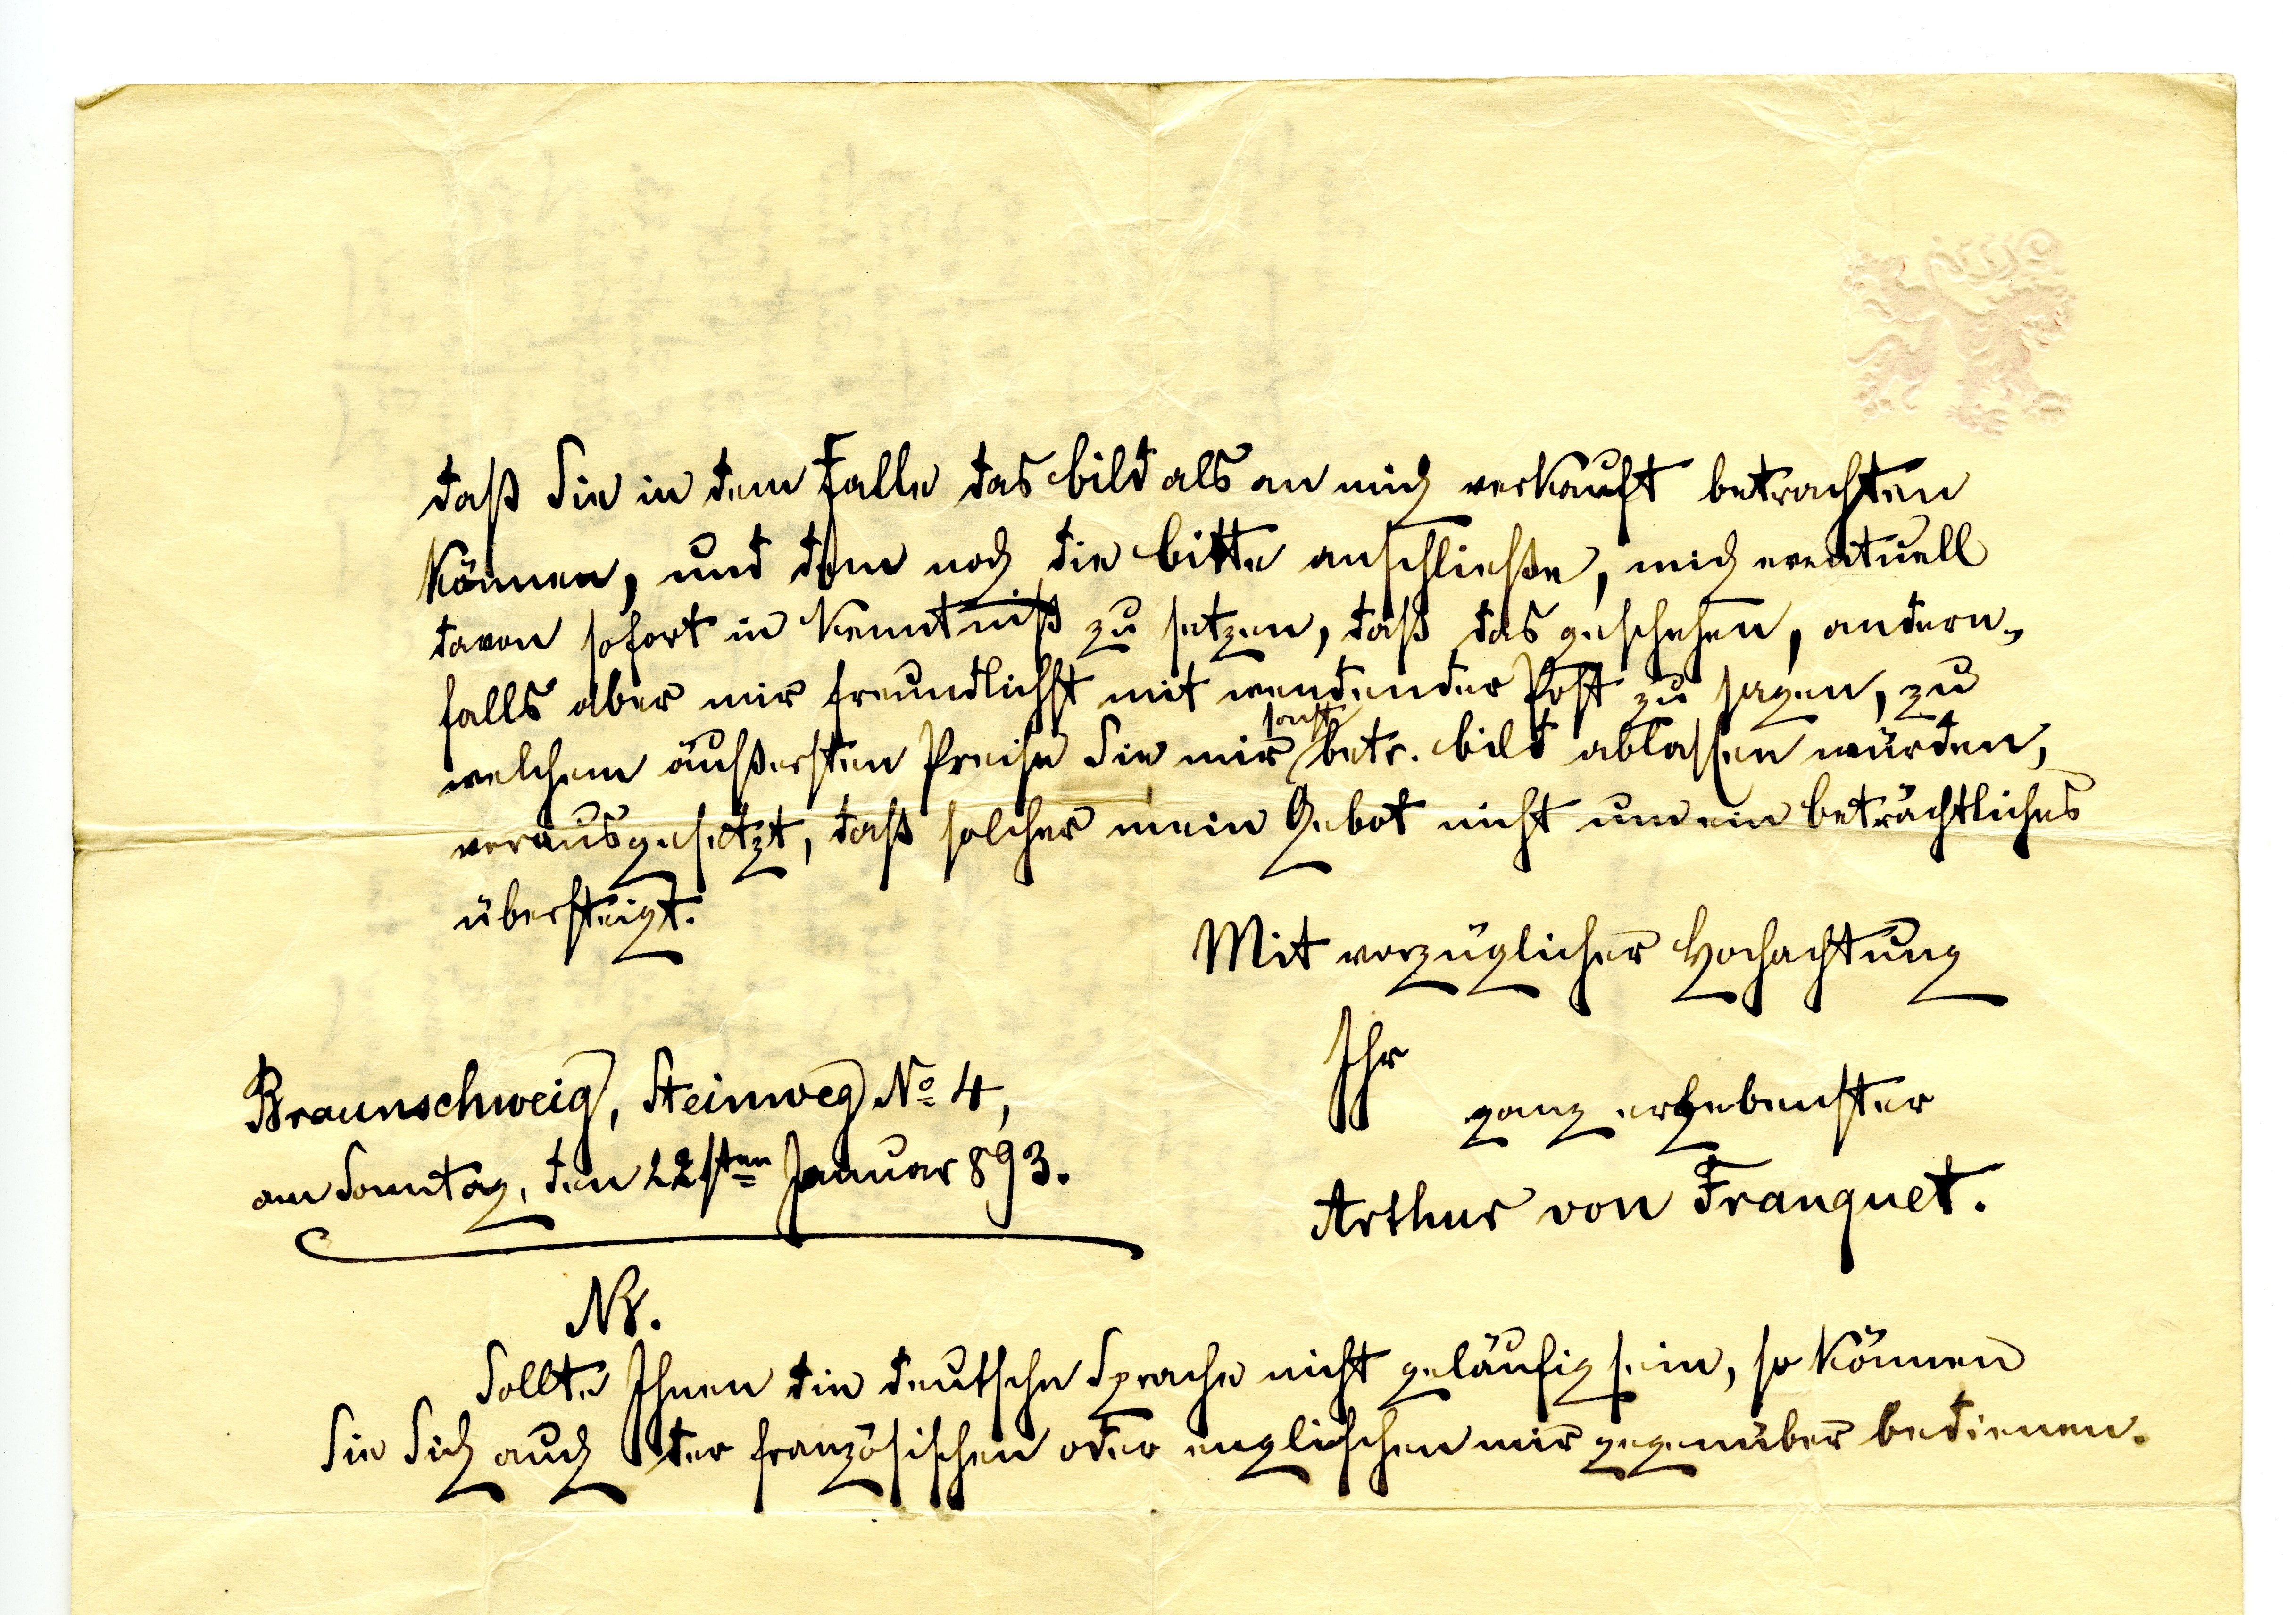 daß Sie in dem Falle das Bild als an mich verkauft betrachten
können, und dem noch die Bitte anschließe, mich eventuell
davon sofort in Kenntniß zu setzen, daß das geschehen, andern-
falls aber mir freundlichst mit wendender Post zu sagen, zu
welchem äußersten Preise Sie mir sonst betr. Bild ablassen würden,
vorausgesetzt, daß solcher mein Gebot nicht um ein beträchtliches
übersteigt.
Mit vorzüglicher Hochachtung
Ihr
ganz ergebenster
Arthur von Franquet.
Braunschweig, Steinweg No 4,
am Sonntag, den 22sten Januar 893.
NB.
Sollte Ihnen die deutsche Sprache nicht geläufig sein, so können
Sie Sich auch der französischen oder englischen mir gegenüber bedienen.